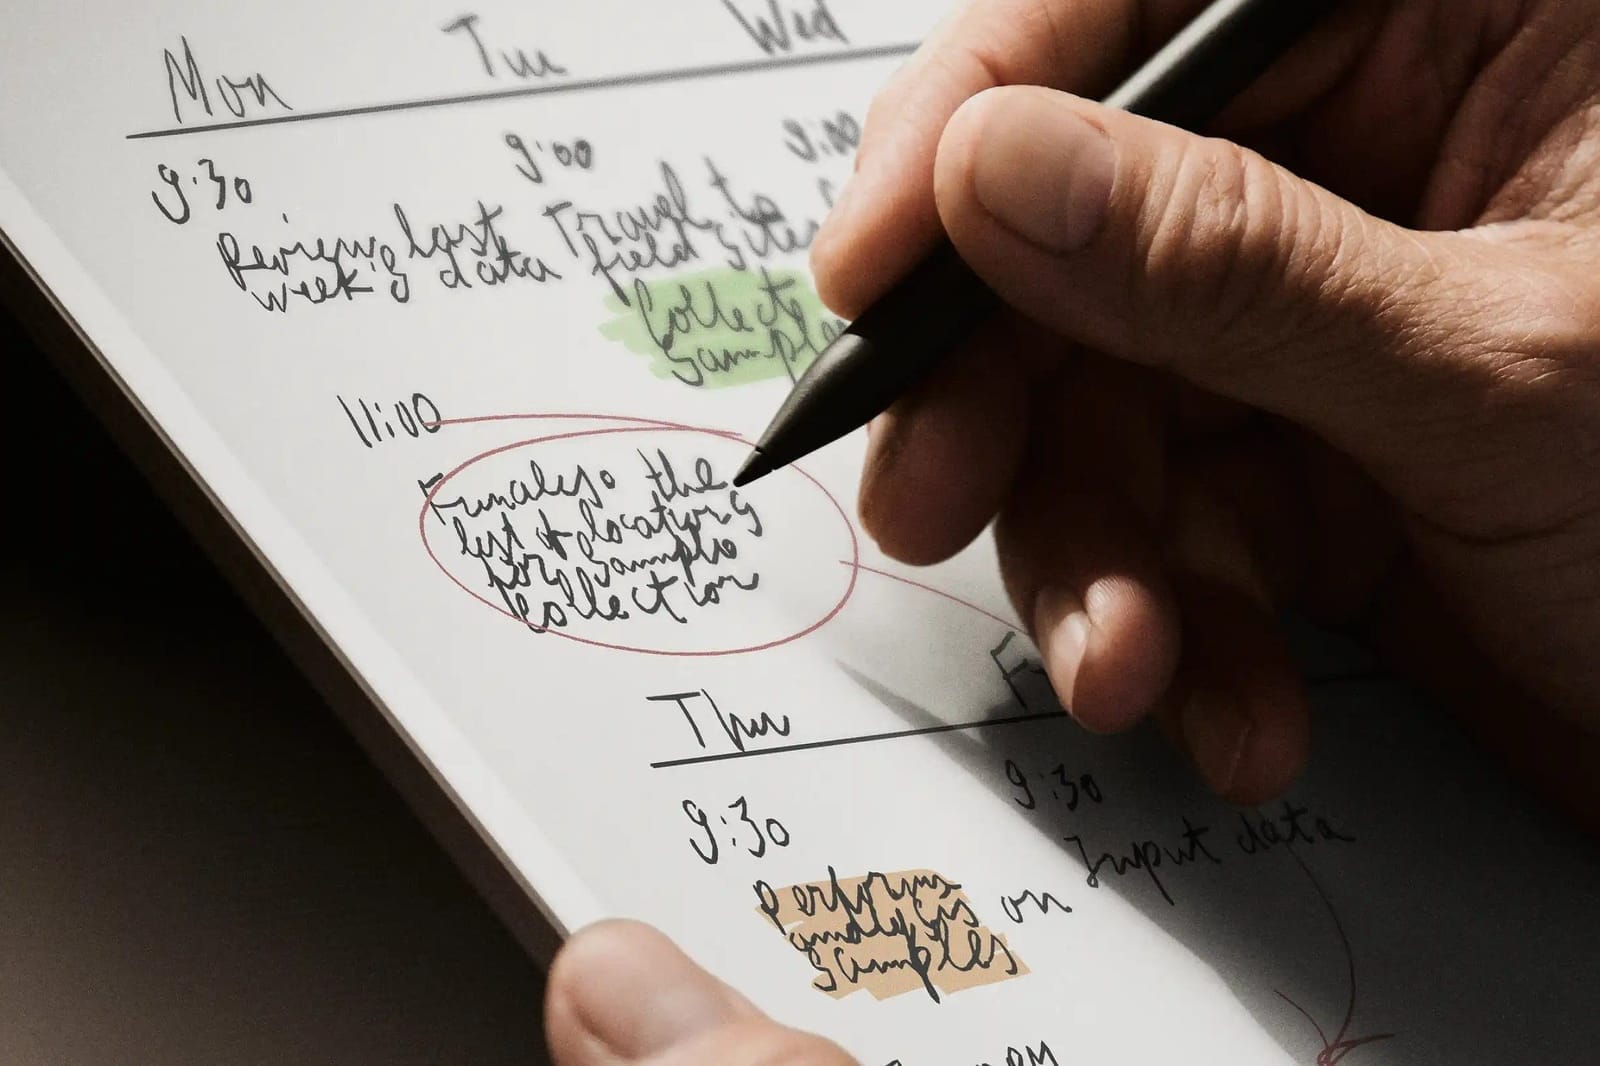 Mon Tue Wed
9:30 9:00 9:00
Reviewing last
week's data
Travel to
field sites
Collect
samples
11:00
Finalize the
list of locations
for sample
collection
Thu
9:30 9:30
Perform
analysis on
samples
Input data